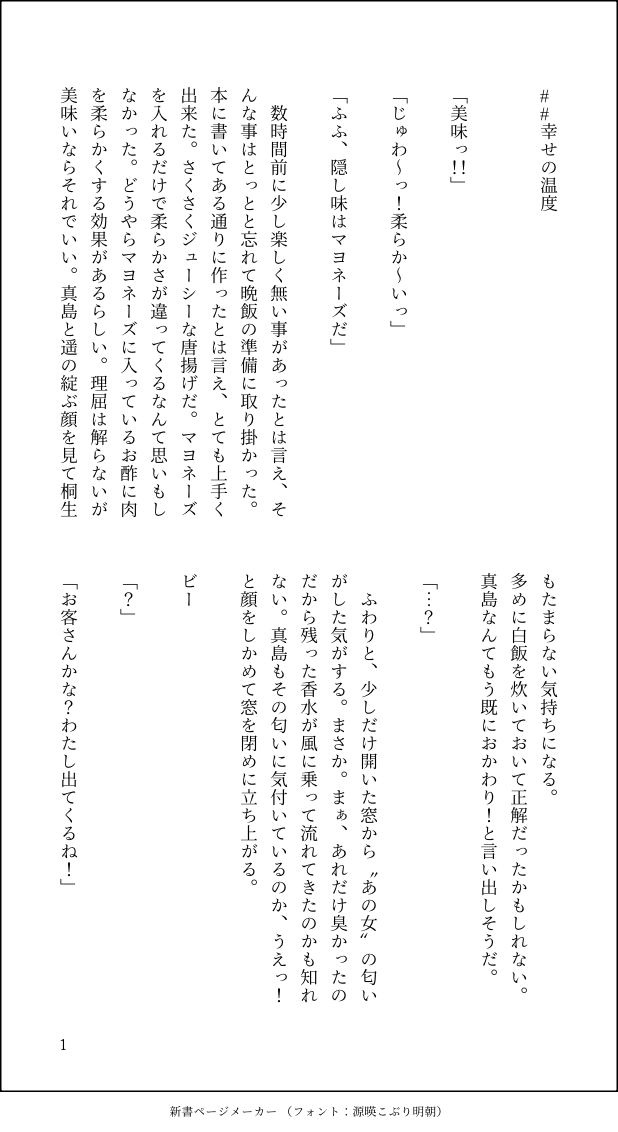 ##幸せの温度
「美味っ!!」
「じゅわ〜っ！柔らか〜いっ」
「ふふ、隠し味はマヨネーズだ」
　数時間前に少し楽しく無い事があったとは言え、そ
んな事はとっとと忘れて晩飯の準備に取り掛かった。
本に書いてある通りに作ったとは言え、とても上手く
出来た。さくさくジューシーな唐揚げだ。マヨネーズ
を入れるだけで柔らかさが違ってくるなんて思いもし
なかった。どうやらマヨネーズに入っているお酢に肉
を柔らかくする効果があるらしい。理屈は解らないが
美味いならそれでいい。真島と遥の綻ぶ顔を見て桐生
もたまらない気持ちになる。
多めに白飯を炊いておいて正解だったかもしれない。
真島なんてもう既におかわり！と言い出しそうだ。
「…？」
　ふわりと、少しだけ開いた窓から〝あの女〟の匂い
がした気がする。まさか。まぁ、あれだけ臭かったの
だから残った香水が風に乗って流れてきたのかも知れ
ない。真島もその匂いに気付いているのか、うえっ！
と顔をしかめて窓を閉めに立ち上がる。
ビー
「？」
「お客さんかな？わたし出てくるね！」
1
新書ページメーカー（フォント：源暎こぶり明朝）